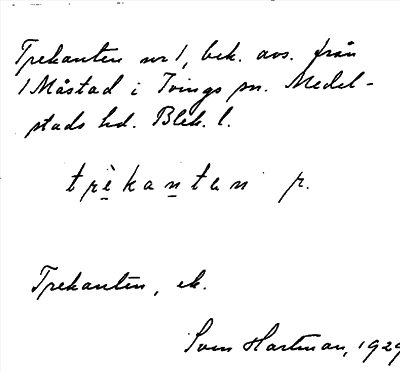 Trekanten nr 1, bek. avs. från
1 Måstad i Tvings sn. Medel-
stads hd. Blek. l.
trèkantan r.
Trekanten, ek.
Sven Hartman, 1929